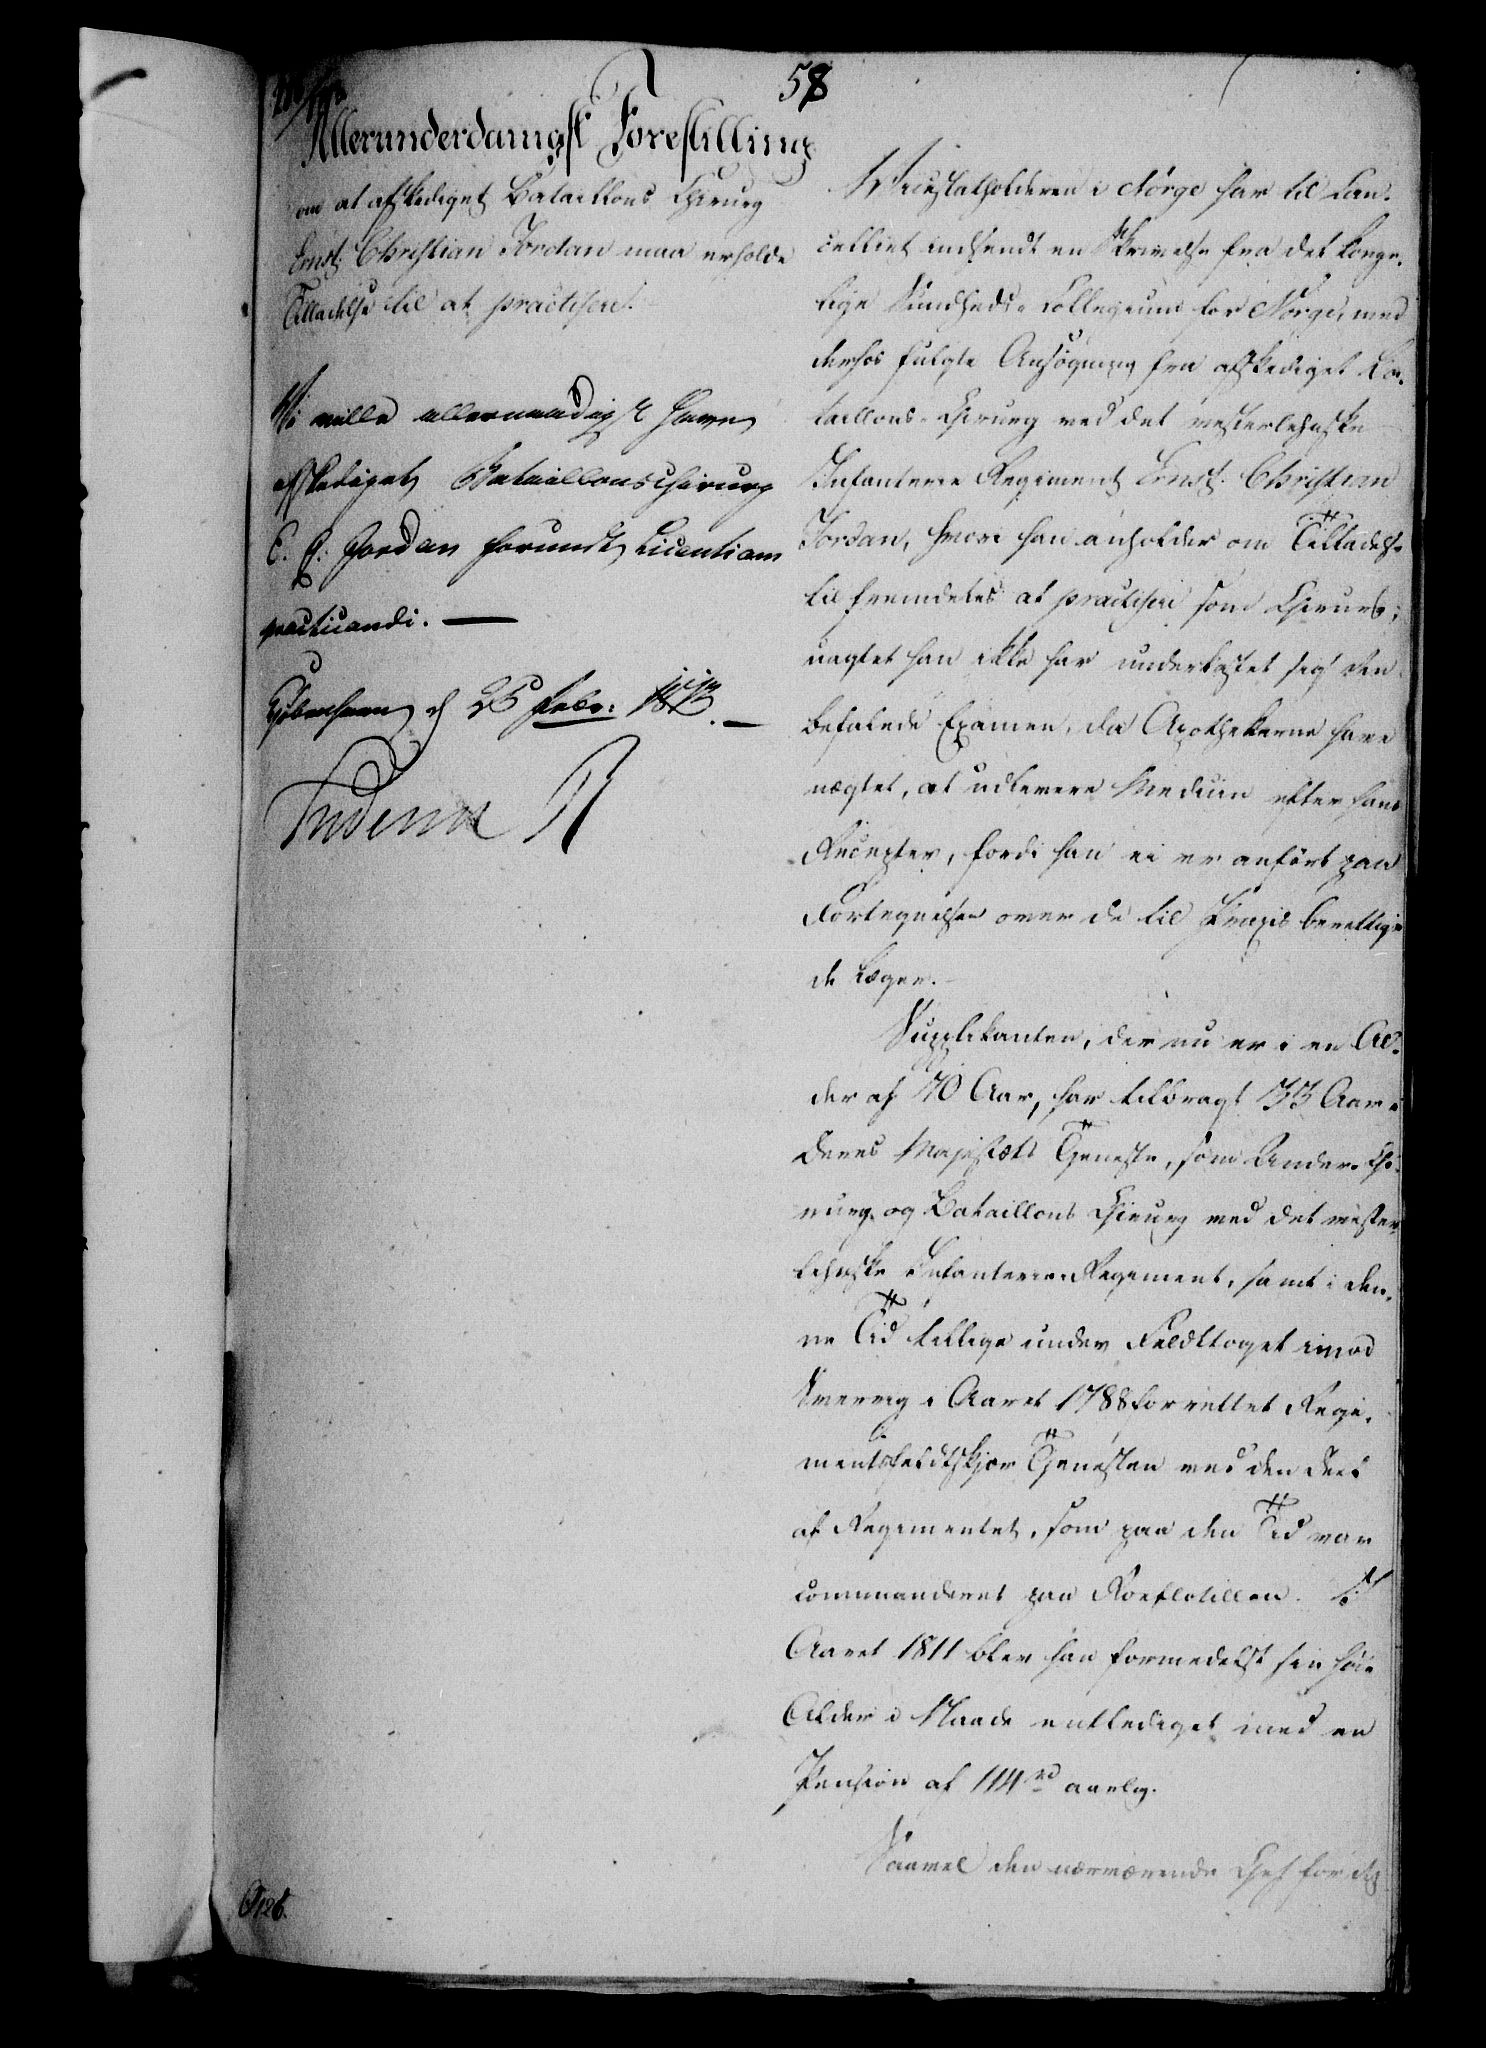 58
Allerunderdanigst Forestilling
om at afskediget Bataillons Chirurg
Ernst Christian Jordan maa erholde
Tilladelse til at practisere.
Vi ville allernaadigst have
afskediget Bataillonschirurg
E. C. Jordan forundt Licentiam
practicandi. —
Kjøbenhavn d 26 Febr: 1813. —
Frederik R
Vicestatholderen i Norge har til Can-
celliet indsendt en Skrivelse fra det konge-
lige Sundheds-Collegium for Norge, med
derhos fulgte Ansøgning fra afskediget Ba-
taillons-Chirurg ved det vesterlehnske
Infanterie Regiment Ernst Christian
Jordan, hvori han anholder om Tilladelse
til fremdeles at practisere som Chirurg,
uagtet han ikke har underkastet sig den
befalede Examen, da Apothekerne have
nægtet, at udlevere Medicin efter hans
Recepter, fordi han ei er anført paa
Fortegnelsen over de til Praxis berettige-
de Læger.
Supplikanten, der nu er i en Al-
der af 70 Aar, har tilbragt 33 Aar i
Deres Majestæts Tjeneste, som Under-Chi-
rurg og Bataillons Chirurg med det vester-
lehnske Infanterie-Regiment, samt i den-
ne Tid tillige under Feldttoget imod
Sverrig i Aaret 1788 forrettet Regi-
mentsfeldtskjær Tjenesten med den Deel
af Regimentet, som paa den Tid var
commanderet paa Roeflotillen. I
Aaret 1811 blev han formedelst sin høie
Alder i Naade entlediget med en
Pension af 114 rd aarlig.
Saavel den nærværende Chef for det
126.